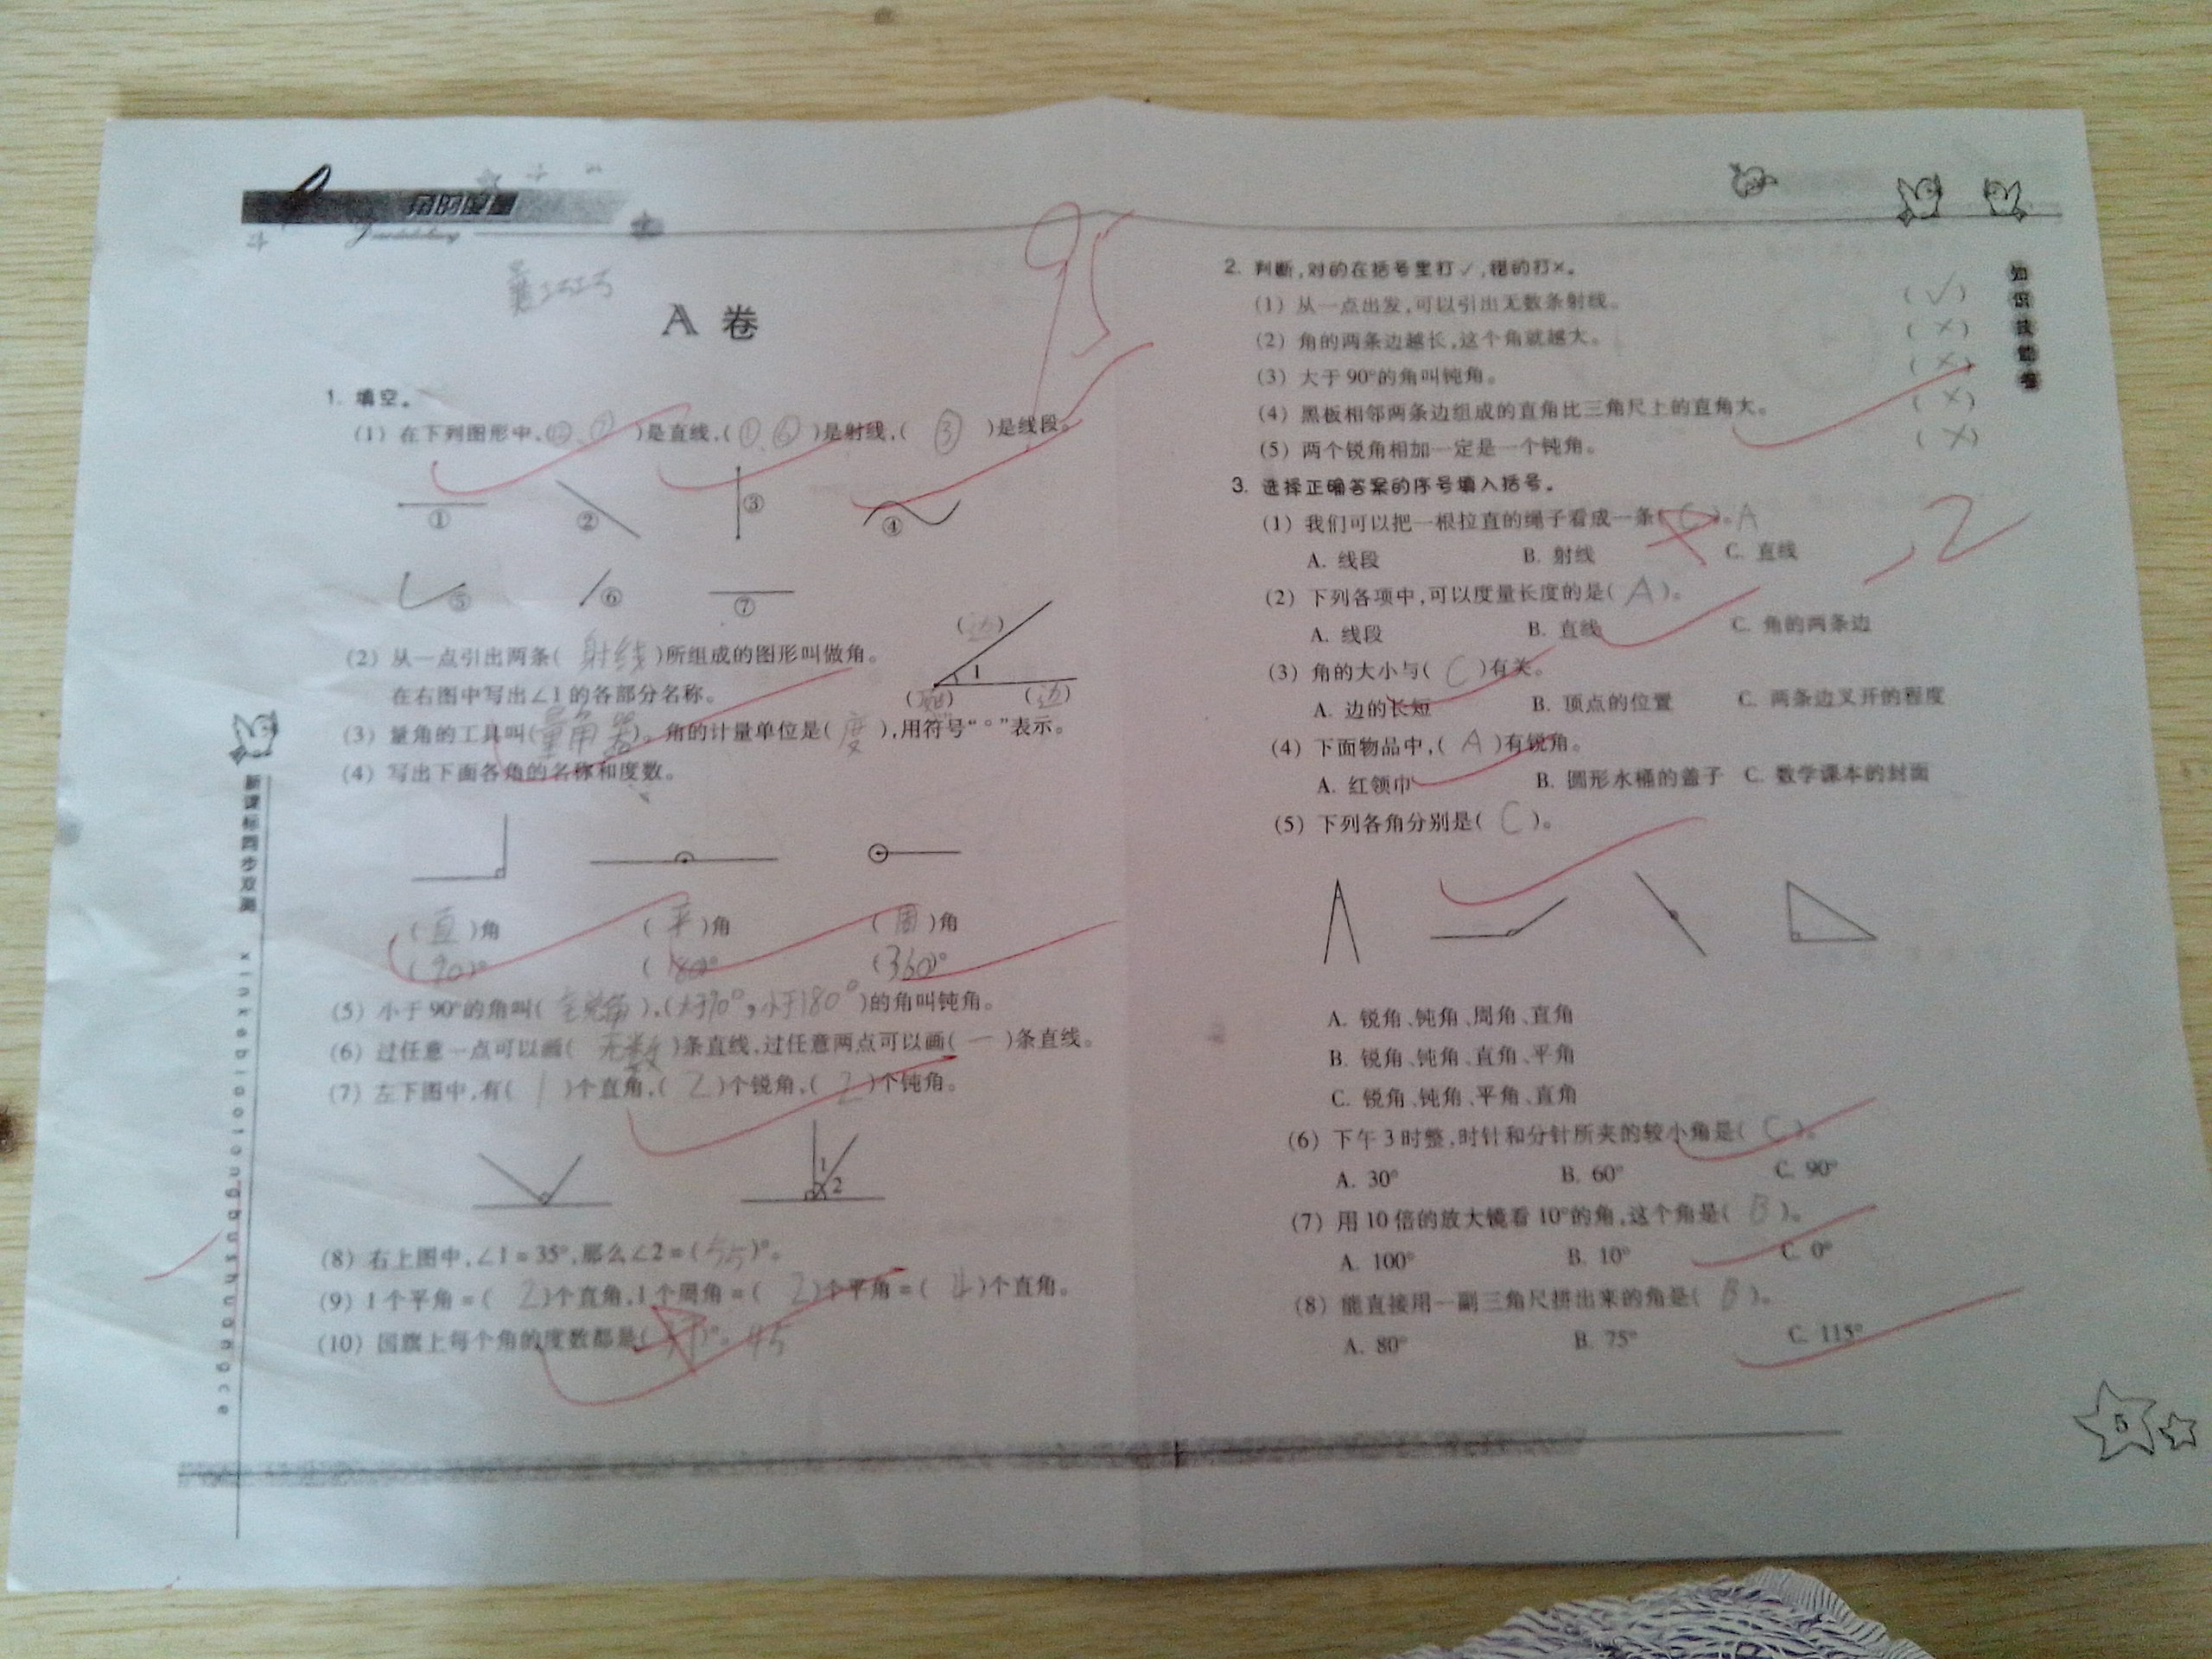 角的度量
A 卷
95
1. 填空。
(1) 在下列图形中,(②、⑦)是直线,(①、⑥)是射线,(③)是线段。
① ② ③ ④
⑤ ⑥ ⑦
(2) 从一点引出两条(射线)所组成的图形叫做角。
在右图中写出∠1的各部分名称。
(边)
1
(顶点) (边)
(3) 量角的工具叫(量角器)。角的计量单位是(度),用符号“°”表示。
(4) 写出下面各角的名称和度数。
(直)角 (平)角 (周)角
(90)° (180)° (360)°
(5) 小于90°的角叫(锐角),(大于90°,小于180°)的角叫钝角。
(6) 过任意一点可以画(无数)条直线,过任意两点可以画(一)条直线。
(7) 左下图中,有(1)个直角,(2)个锐角,(2)个钝角。
1 2
(8) 右上图中,∠1=35°,那么∠2=(55)°。
(9) 1个平角=(2)个直角,1个周角=(2)个平角=(4)个直角。
(10) 国旗上每个角的度数都是( )°。
新课标同步双测
xinkebiaotongbushuangce
2. 判断,对的在括号里打✓,错的打×。
(1) 从一点出发,可以引出无数条射线。 (✓)
(2) 角的两条边越长,这个角就越大。 (×)
(3) 大于90°的角叫钝角。 (×)
(4) 黑板相邻两条边组成的直角比三角尺上的直角大。 (×)
(5) 两个锐角相加一定是一个钝角。 (×)
3. 选择正确答案的序号填入括号。
(1) 我们可以把一根拉直的绳子看成一条(C)。A
A. 线段 B. 射线 C. 直线
-2
(2) 下列各项中,可以度量长度的是(A)。
A. 线段 B. 直线 C. 角的两条边
(3) 角的大小与(C)有关。
A. 边的长短 B. 顶点的位置 C. 两条边叉开的程度
(4) 下面物品中,(A)有锐角。
A. 红领巾 B. 圆形水桶的盖子 C. 数学课本的封面
(5) 下列各角分别是(C)。
A. 锐角、钝角、周角、直角
B. 锐角、钝角、直角、平角
C. 锐角、钝角、平角、直角
(6) 下午3时整,时针和分针所夹的较小角是(C)。
A. 30° B. 60° C. 90°
(7) 用10倍的放大镜看10°的角,这个角是(B)。
A. 100° B. 10° C. 0°
(8) 能直接用一副三角尺拼出来的角是(B)。
A. 80° B. 75° C. 115°
知识技能卷
5